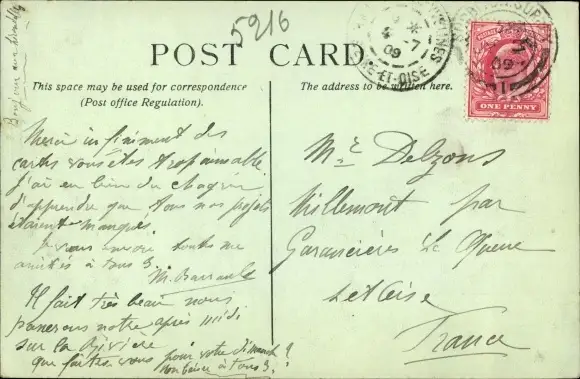 5216
POST CARD.
This space may be used for correspondence
(Post office Regulation).
The address to be written here.
POSTAGE
ONE PENNY
09
SEINE-ET-OISE
Bonjour aux
Merci infiniment des
cartes vous êtes trop aimable
J'ai eu bien du chagrin
d'apprendre que tous nos projets
étaient manqués,
je vous envoie toutes mes
amitiés à tous 3.
M. Barrault
Il fait très beau nous
passerons notre après midi
sur la rivière
que faites vous pour votre dimanche?
mon baiser à tous 3.
Mr Delzons
Millemont par
Garancières La Queue
S et Oise
France